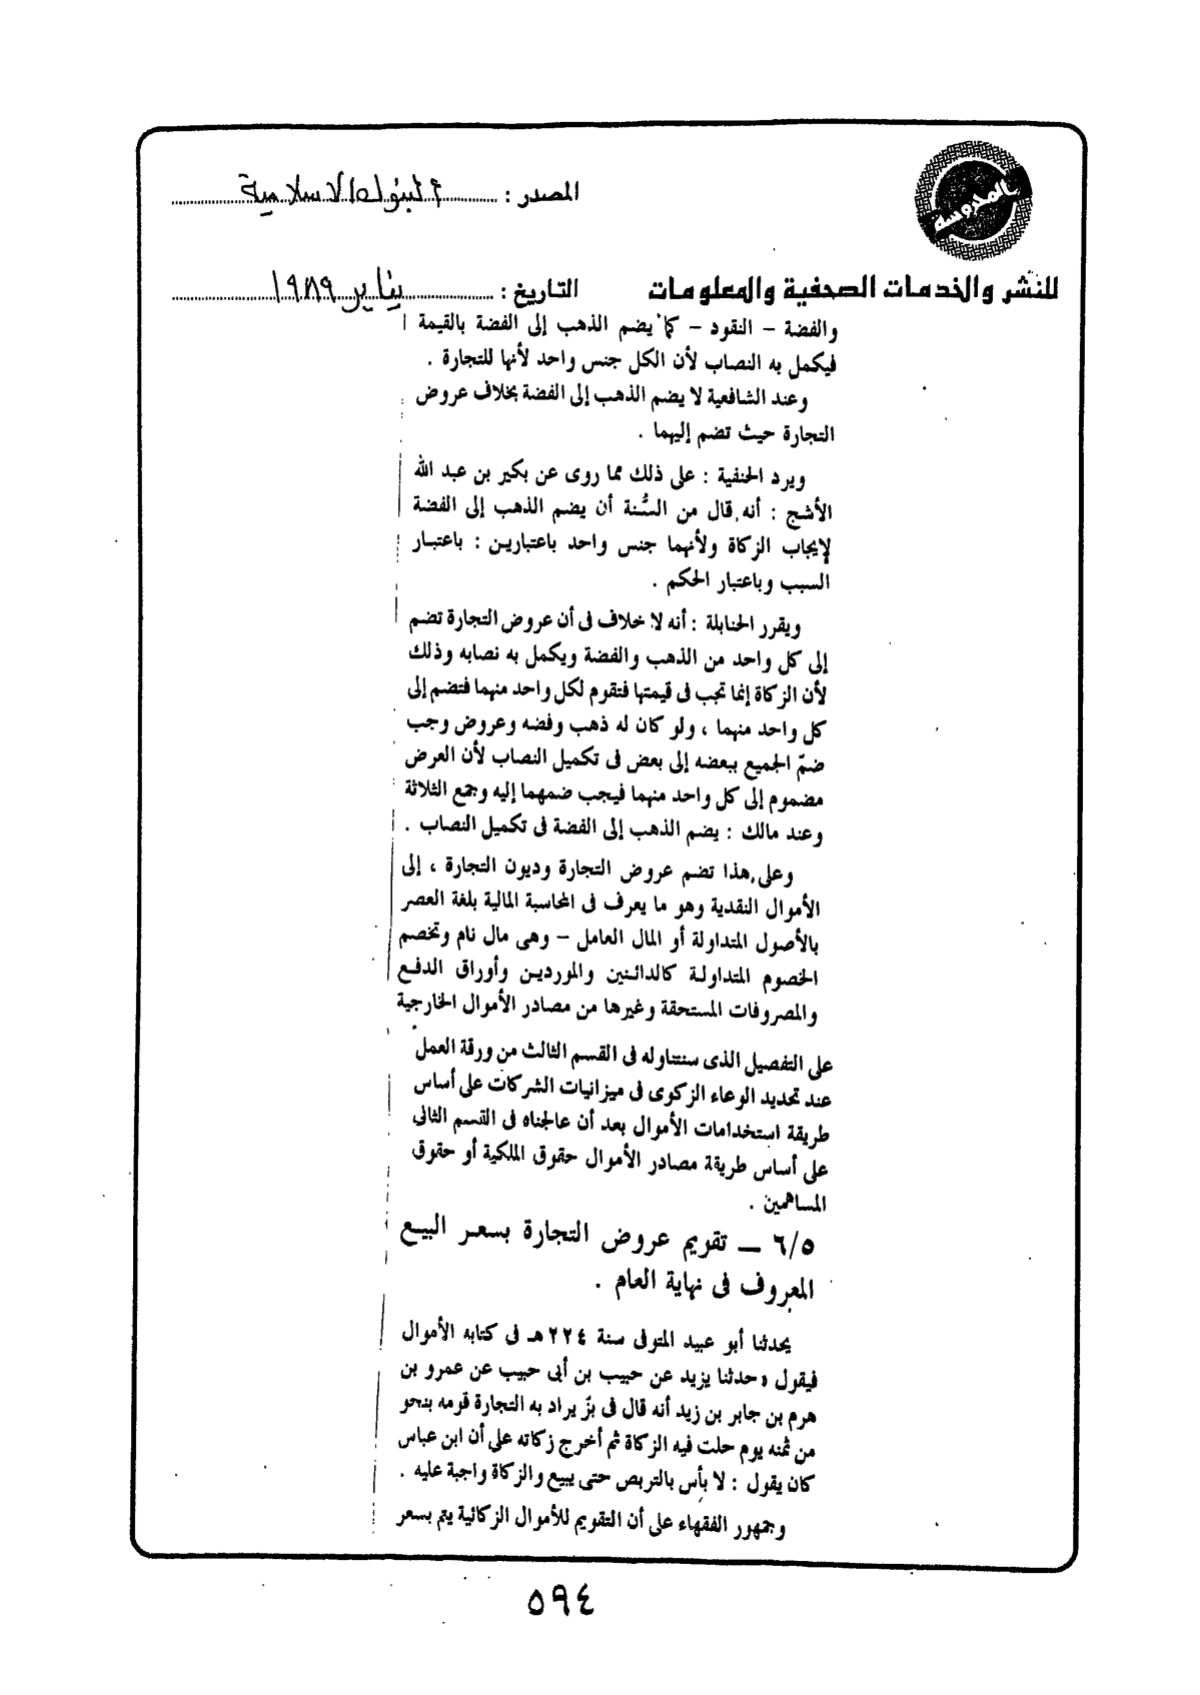 المصدر : البنوك الاسلامية
للنشر والخدمات الصحفية والمعلومات
التاريخ : يناير ١٩٨٩
والفضة – النقود – كما يضم الذهب إلى الفضة بالقيمة
فيكمل به النصاب لأن الكل جنس واحد لأنها للتجارة .
وعند الشافعية لا يضم الذهب إلى الفضة بخلاف عروض
التجارة حيث تضم إليهما .
ويرد الحنفية : على ذلك مما روى عن بكير بن عبد الله
الأشج : أنه قال من السُّنة أن يضم الذهب إلى الفضة
لإيجاب الزكاة ولأنهما جنس واحد باعتبارين : باعتبار
السبب وباعتبار الحكم .
ويقرر الحنابلة : أنه لا خلاف فى أن عروض التجارة تضم
إلى كل واحد من الذهب والفضة ويكمل به نصابه وذلك
لأن الزكاة إنما تجب فى قيمتها فتقوم لكل واحد منهما فتضم إلى
كل واحد منهما ، ولو كان له ذهب وفضه وعروض وجب
ضمّ الجميع ببعضه إلى بعض فى تكميل النصاب لأن العرض
مضموم إلى كل واحد منهما فيجب ضمهما إليه وجمع الثلاثة
وعند مالك : يضم الذهب إلى الفضة فى تكميل النصاب .
وعلى هذا تضم عروض التجارة وديون التجارة ، إلى
الأموال النقدية وهو ما يعرف فى المحاسبة المالية بلغة العصر
بالأصول المتداولة أو المال العامل – وهى مال نام وتخصم
الخصوم المتداولة كالدائنين والموردين وأوراق الدفع
والمصروفات المستحقة وغيرها من مصادر الأموال الخارجية
على التفصيل الذى سنتناوله فى القسم الثالث من ورقة العمل
عند تحديد الوعاء الزكوى فى ميزانيات الشركات على أساس
طريقة استخدامات الأموال بعد أن عالجناه فى القسم الثانى
على أساس طريقة مصادر الأموال حقوق الملكية أو حقوق
المساهمين .
٦/٥ – تقويم عروض التجارة بسعر البيع
المعروف فى نهاية العام .
يحدثنا أبو عبيد المتوفى سنة ٢٢٤هـ فى كتابه الأموال
فيقول « حدثنا يزيد عن حبيب بن أبى حبيب عن عمرو بن
هرم بن جابر بن زيد أنه قال فى بزّ يراد به التجارة قومه بنحو
من ثمنه يوم حلت فيه الزكاة ثم أخرج زكاته على أن ابن عباس
كان يقول : لا بأس بالتربص حتى يبيع والزكاة واجبة عليه .
وجمهور الفقهاء على أن التقويم للأموال الزكائية يتم بسعر
٥٩٤